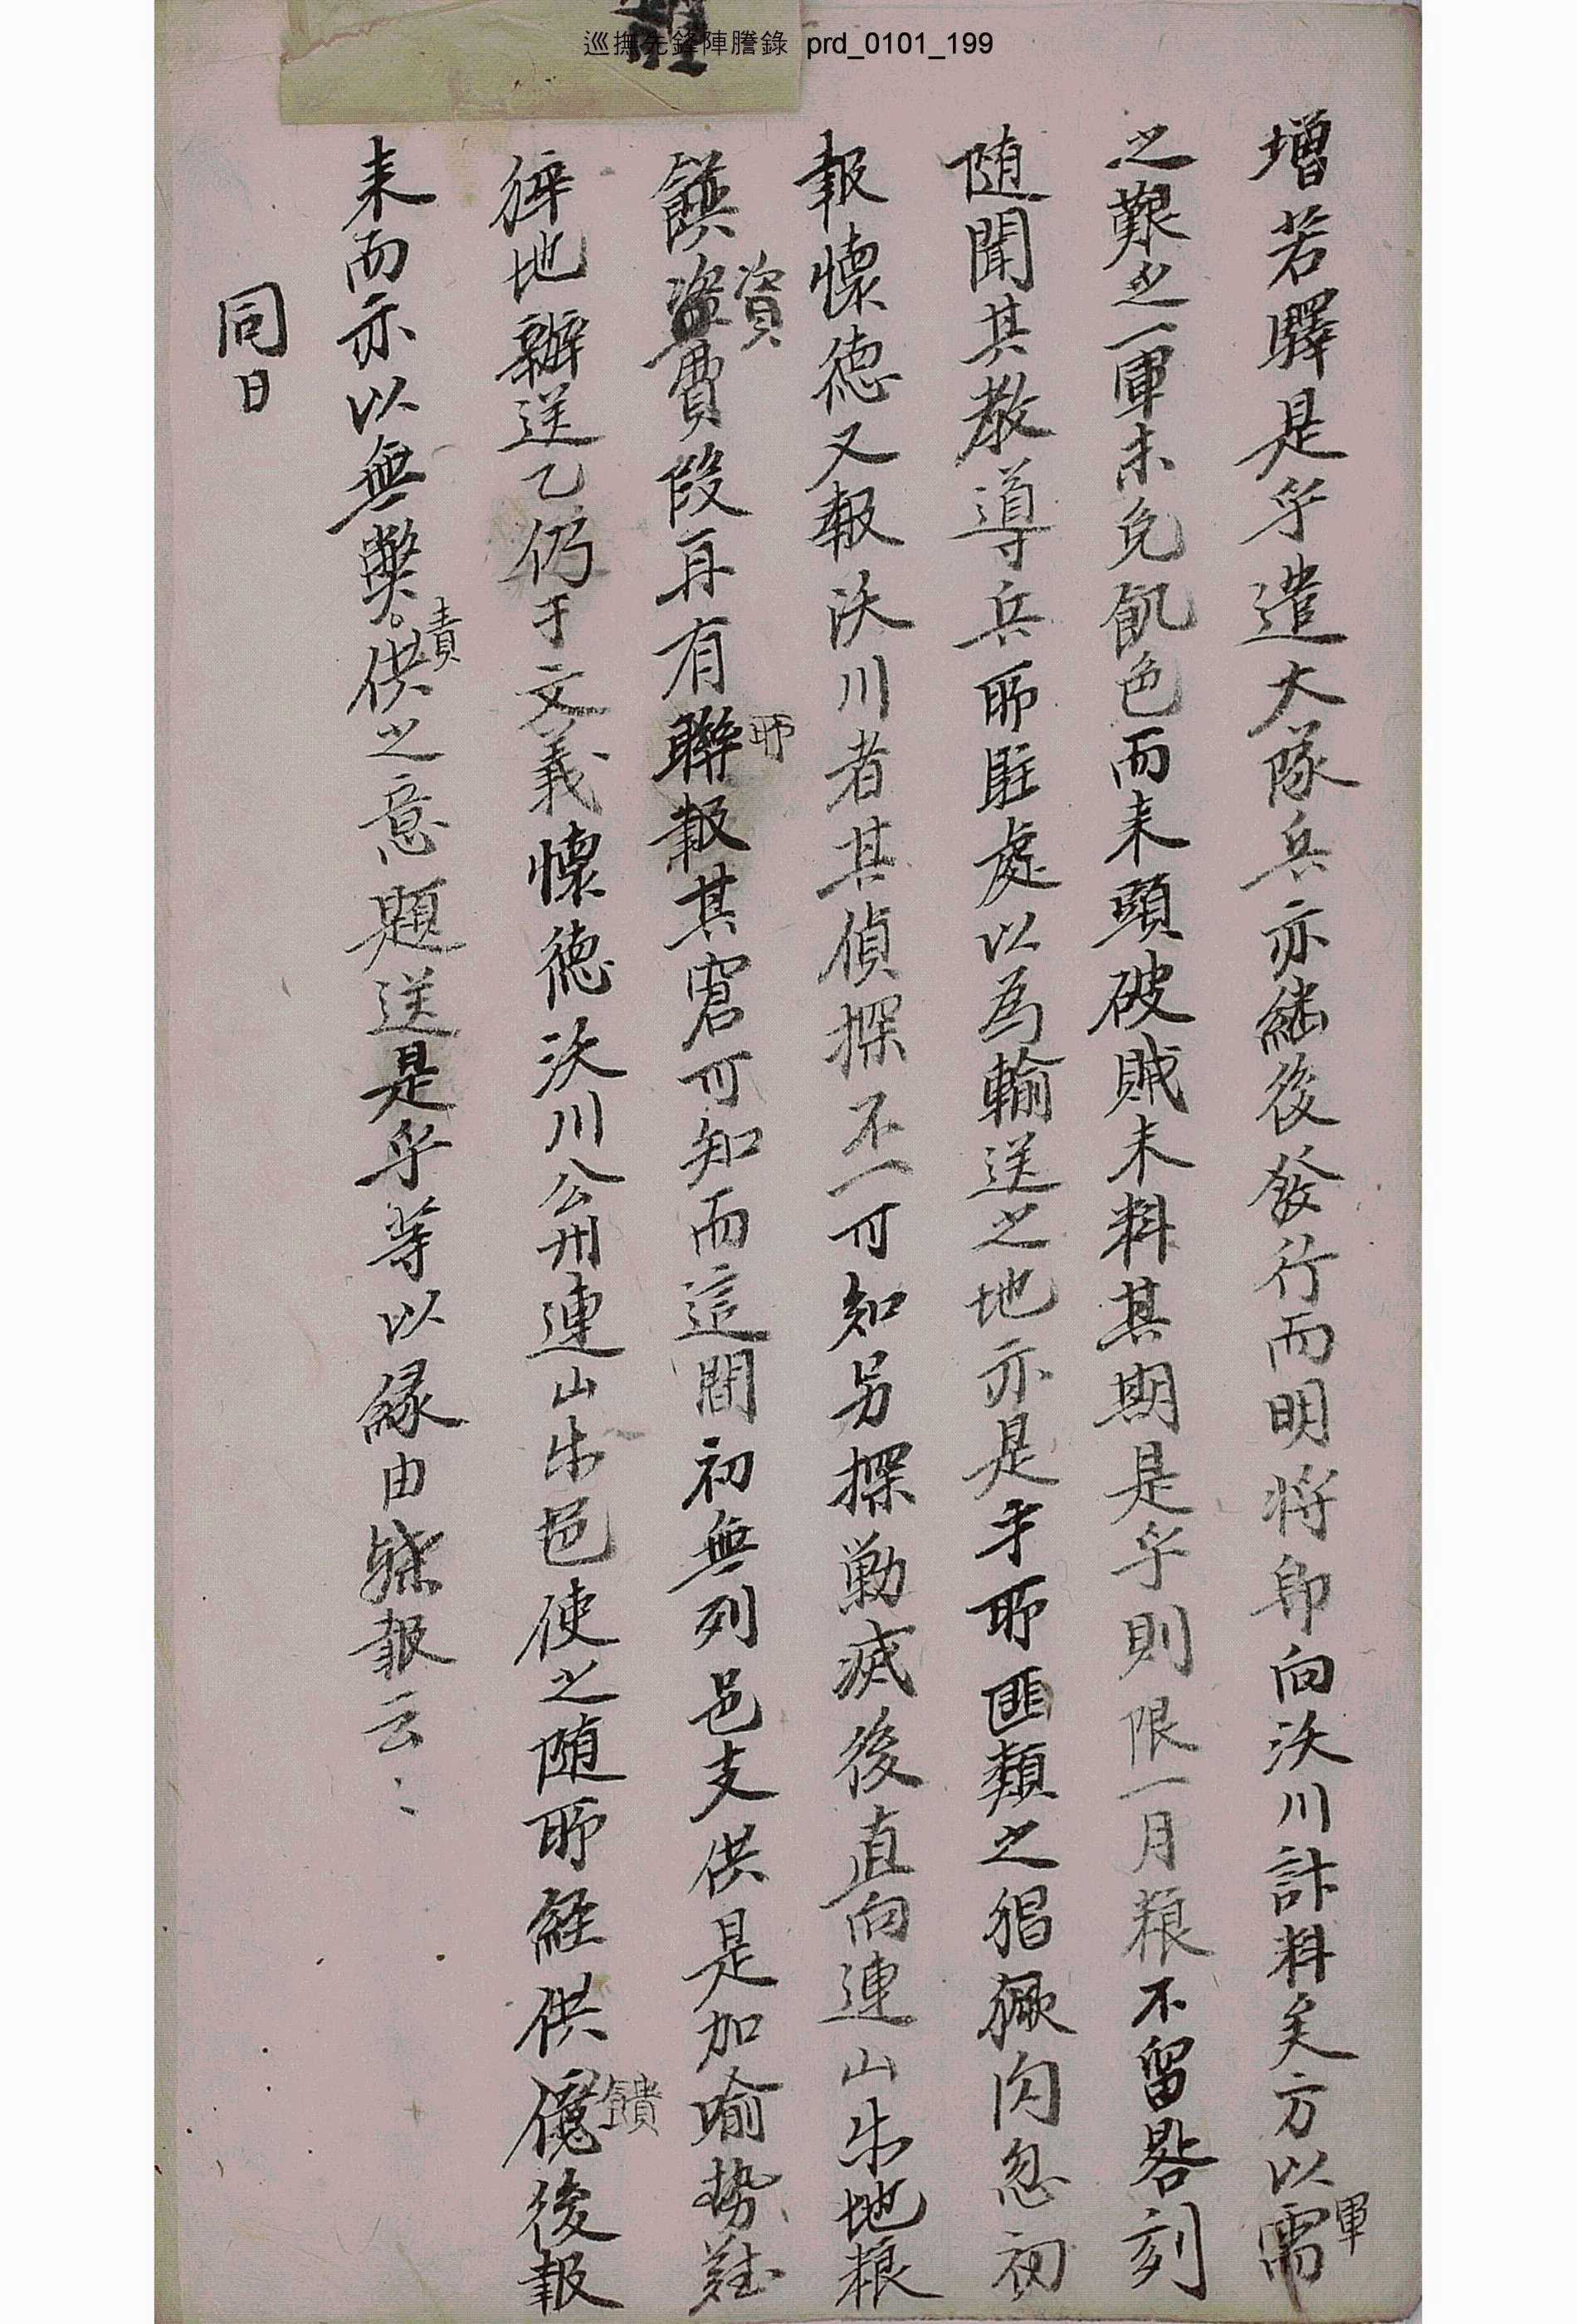 巡撫先鋒陣謄錄 prd_0101_199
增若驛是乎遣大隊兵亦継後發行而明將卽向沃川計料矣方以需軍
之艱乏一軍未免飢色而来頭破賊未料其期是乎則限一月粮不留晷刻
随聞其教導兵所駐處以為輸送之地亦是乎所匪類之猖獗闪忽初
報懷德又報沃川者其偵探不一可知另探勦滅後直向連山等地粮
饌資費段再有所報其窘可知而這間初無列邑支供是加喻势難
猝地辦送乙仍于文義懷德沃川公州連山等邑使之随所經供饋後報
来而亦以無弊責供之意題送是乎等以緣由牒報云〻
同日